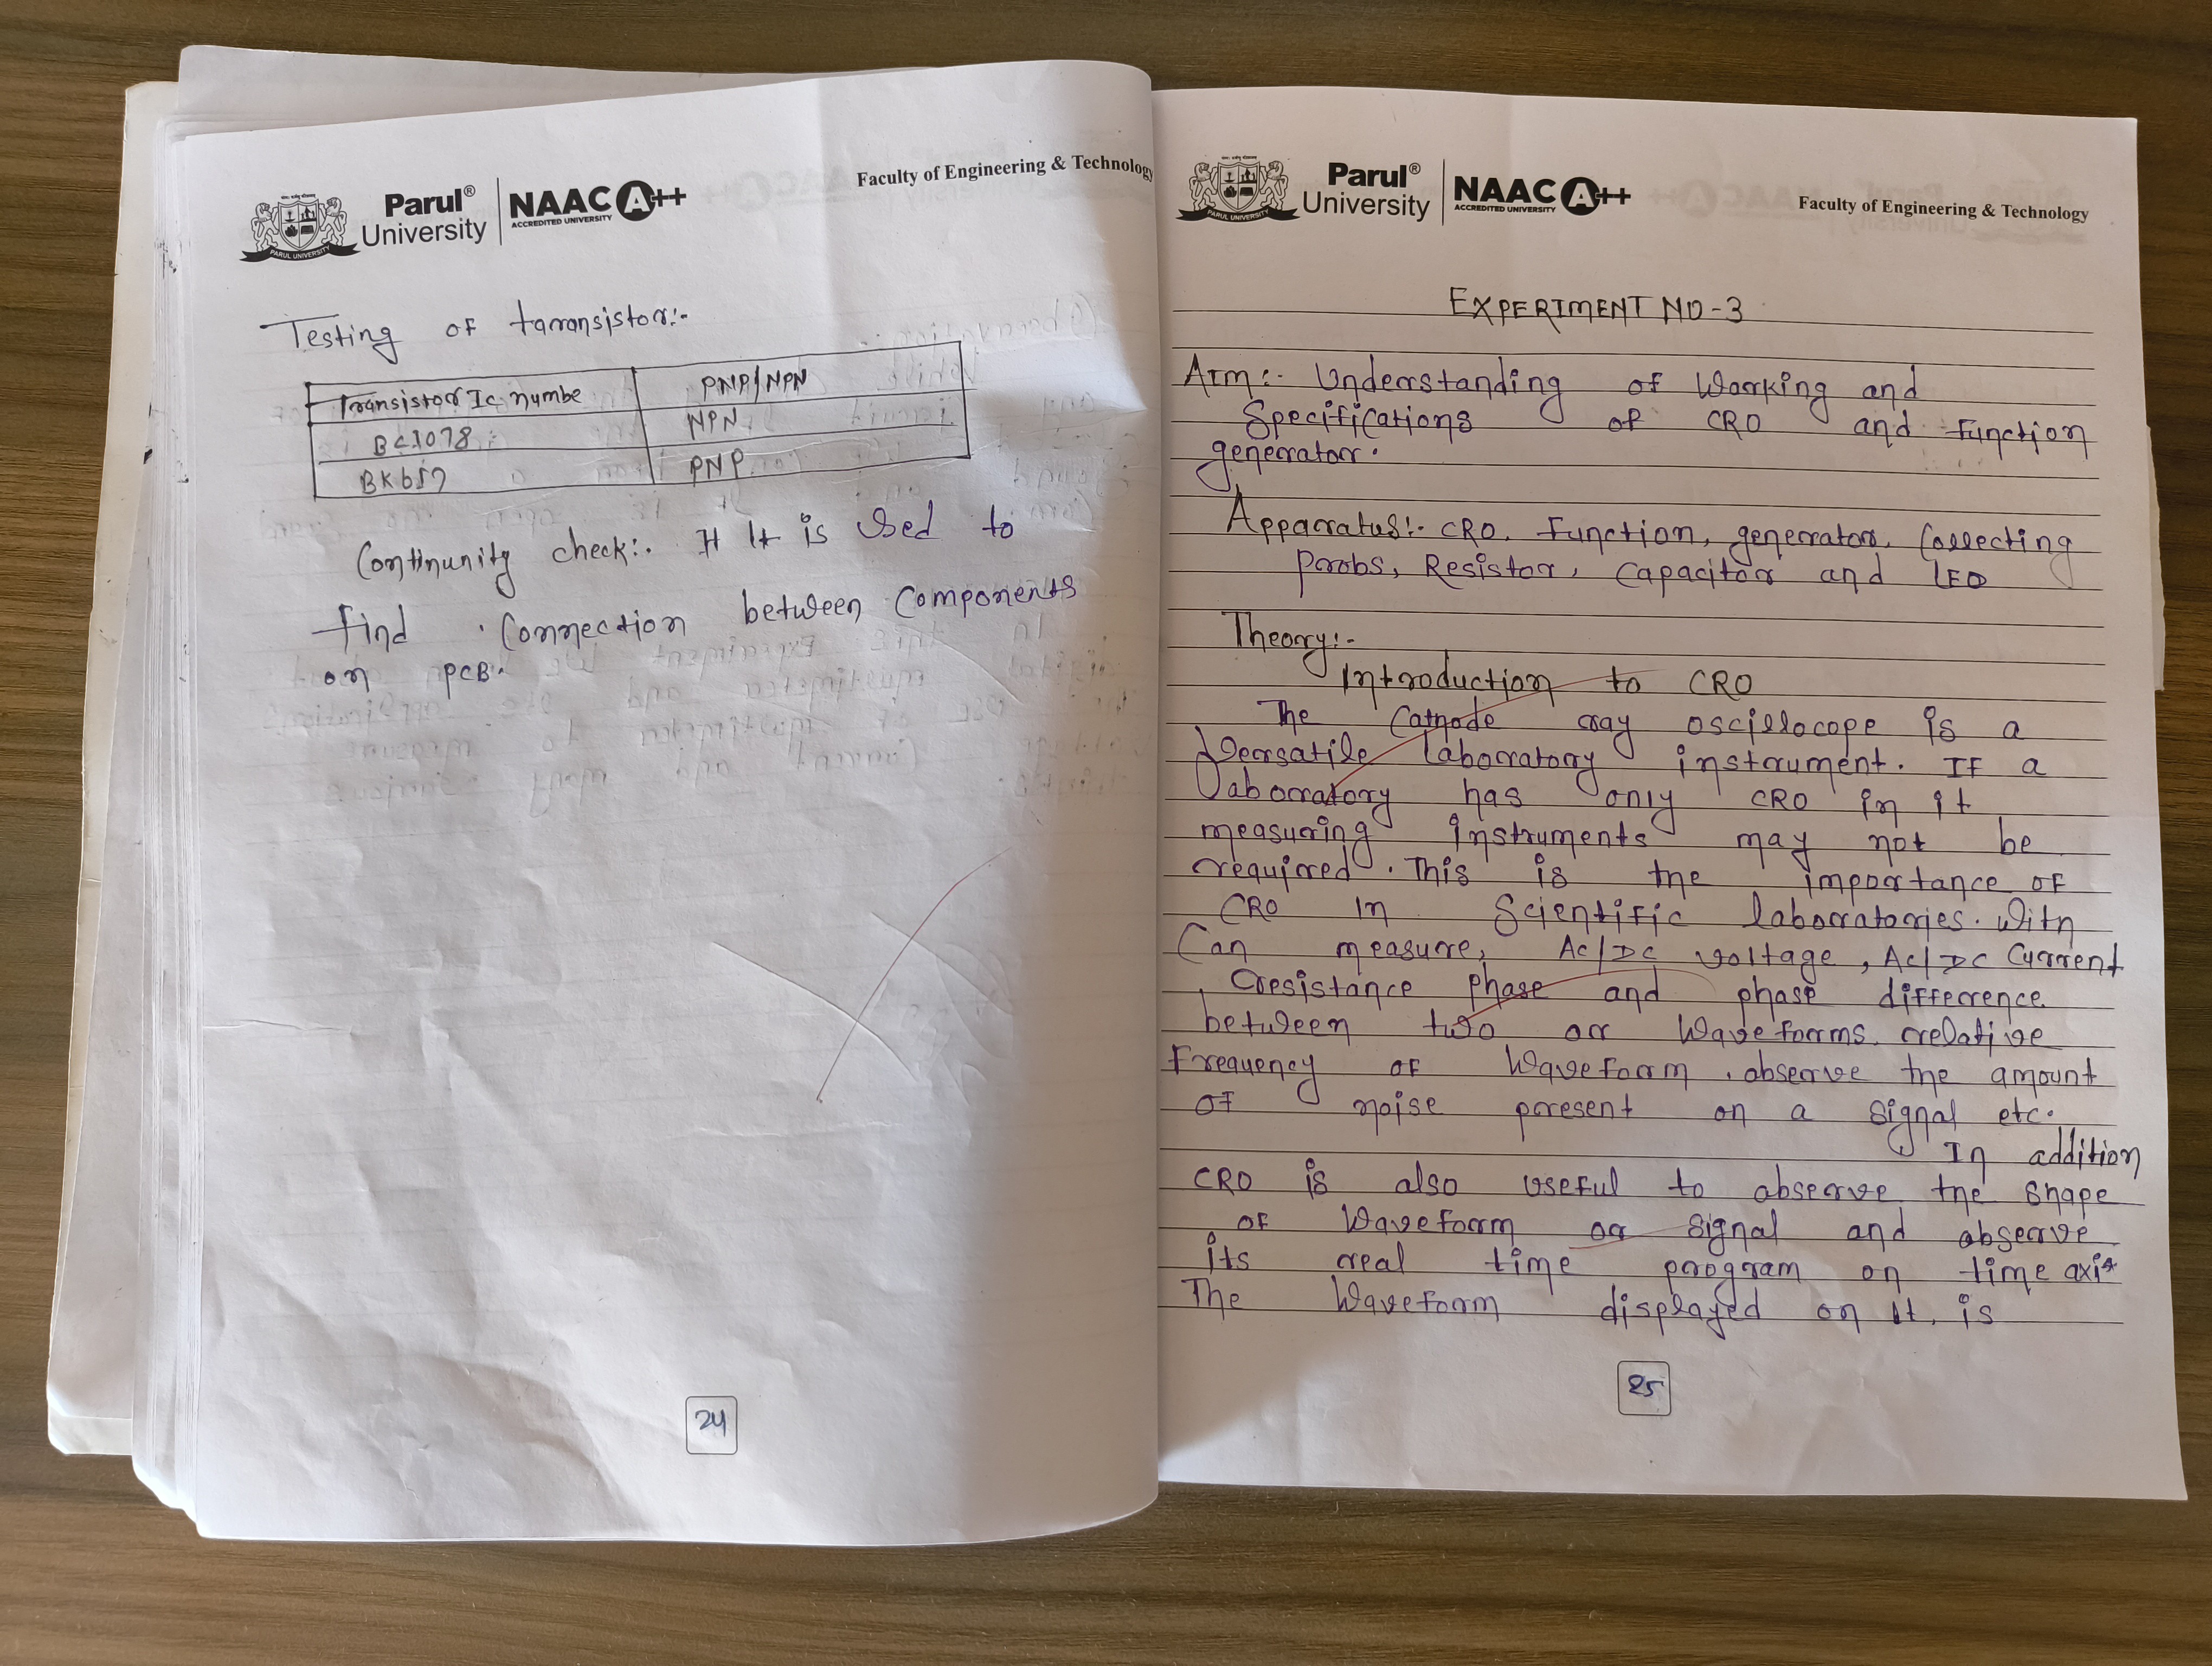 Parul® University
NAAC A++
ACCREDITED UNIVERSITY
PARUL UNIVERSITY
Faculty of Engineering & Technology
Testing of taransistor:-
Transistor Ic numbe PNP/NPN
BC1078 NPN
PNP
Continunity check:. It is Used to
find connection between components
on PCB.
24
Parul® University
NAAC A++
ACCREDITED UNIVERSITY
PARUL UNIVERSITY
Faculty of Engineering & Technology
EXPERIMENT NO-3
AIM:- Understanding of Working and
Specifications of CRO and function
generator.
Apparatus:- CRO, Function, generator, Collecting
Probs, Resistor, Capacitor and LED
Theory:-
Introduction to CRO
The Cathode ray oscillocope is a
Versatile laboratory instrument. IF a
laboratory has only CRO in it
measuring instruments may not be
required. This is the importance OF
CRO In Scientific laboratories. With
Can measure, AC/DC voltage, AC/DC Current
, resistance phase and phase difference
between two or Waveforms. relative
Frequency OF Waveform, observe the amount
OF noise present on a signal etc.
In addition
CRO is also useful to observe the shape
OF Waveform or signal and observe
its real time program on time axis
The Waveform displayed on It, is
25